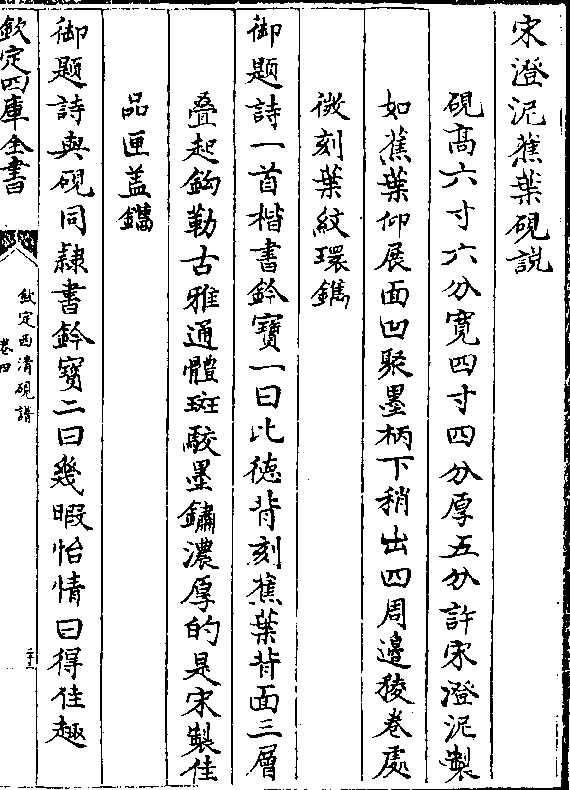 宋澄泥蕉葉硯說
硯高六寸六分寛四寸四分厚五分許宋澄泥製
如蕉葉仰展面凹聚墨柄下稍出四周邊稜卷處
微刻葉紋環鐫
御題詩一首楷書鈐寶一曰比徳背刻蕉葉背面三層
疊起鈎勒古雅通體斑駮墨鏽濃厚的是宋製佳
品匣盖鐫
御題詩與硯同隸書鈐寶二曰幾暇怡情曰得佳趣
欽定四庫全書
欽定西清硯譜
卷四